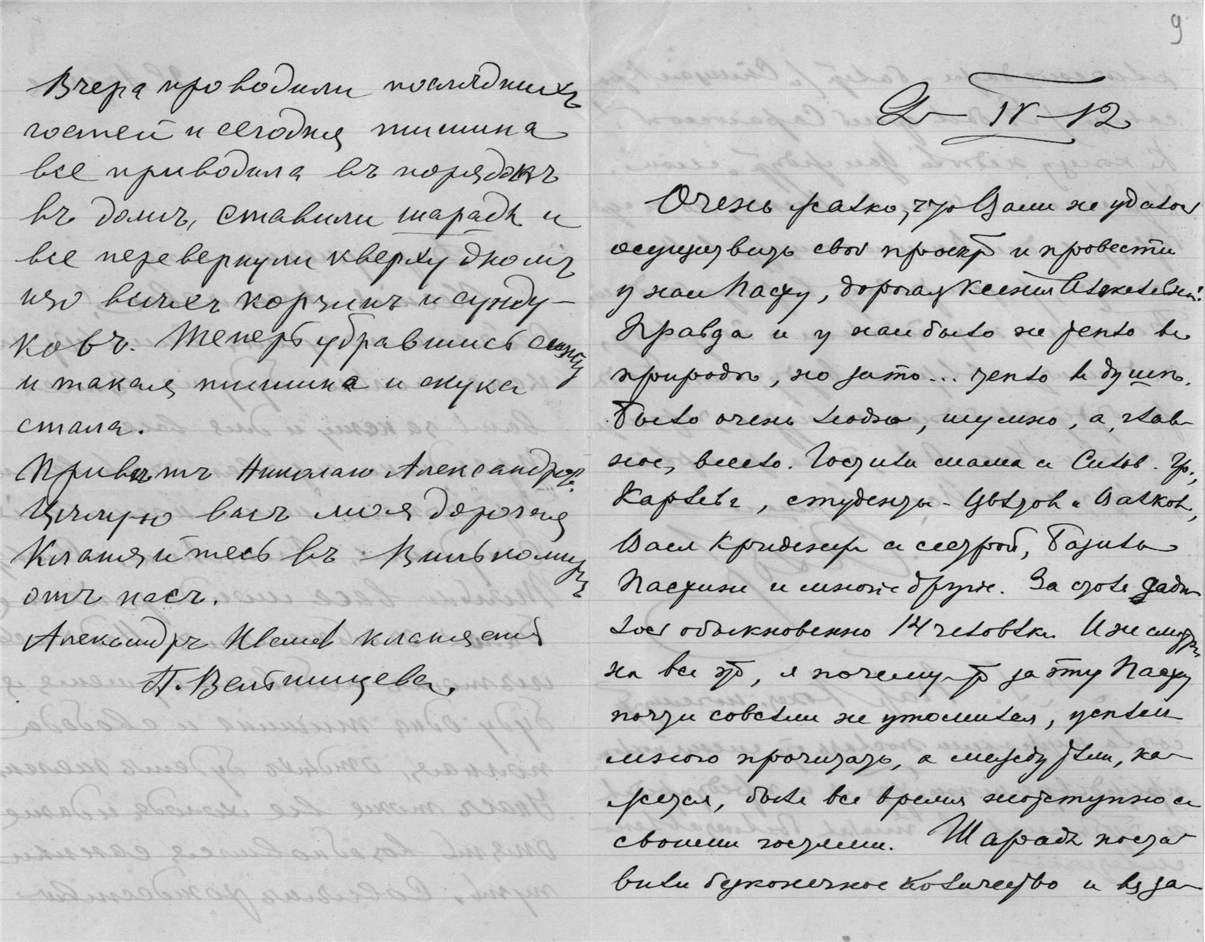 9
Вчера проводили последнихъ
гостей и сегодня тишина
все приводила въ порядокъ
въ доме, ставили шарады и
все перевернули кверху дномъ
изо всехъ корзинъ и сунду-
ковъ. Теперь убравшись сижу
и такая тишина и скука
стала.
Приветъ Николаю Александр.
Цѣлую васъ моя дорогая
Кланяйтесь въ Вилькомиръ
отъ насъ.
Александръ Иванов кланяется
П. Вельтищева.
2-IV-12
Очень жалко, что Вам не удалось
осуществить свой проект и провести
у нас Пасху, дорогая Ксения Алексеевна!
Правда и у нас было не тепло в
природе, но зато... тепло в душе.
Было очень людно, шумно, а, глав-
ное, весело. Гостили мама
студенты
Вася с сестрой,
и многие другие. За стол сади-
лось обыкновенно 14 человек. И не смотря
на все это, я почему-то за эту Пасху
почти совсем не утомился, успел
много прочитать, а между тем, ка-
жется, был все время неотступно с
своими гостями. Шарад поста-
вили бесконечное количество и вз за-